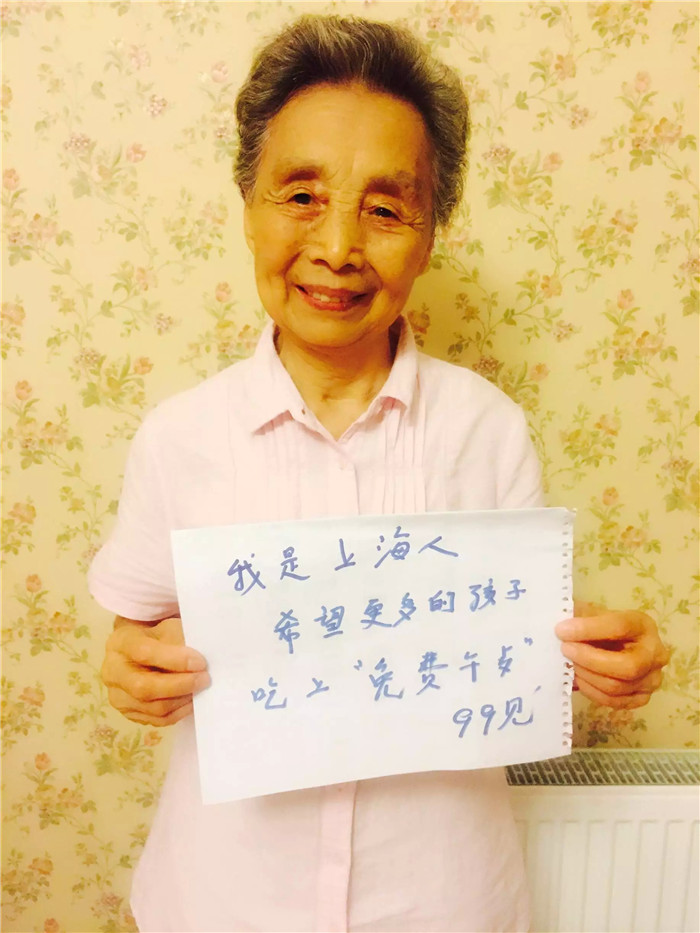 我是上海人
希望更多的孩子
吃上"免费午歺"
99见